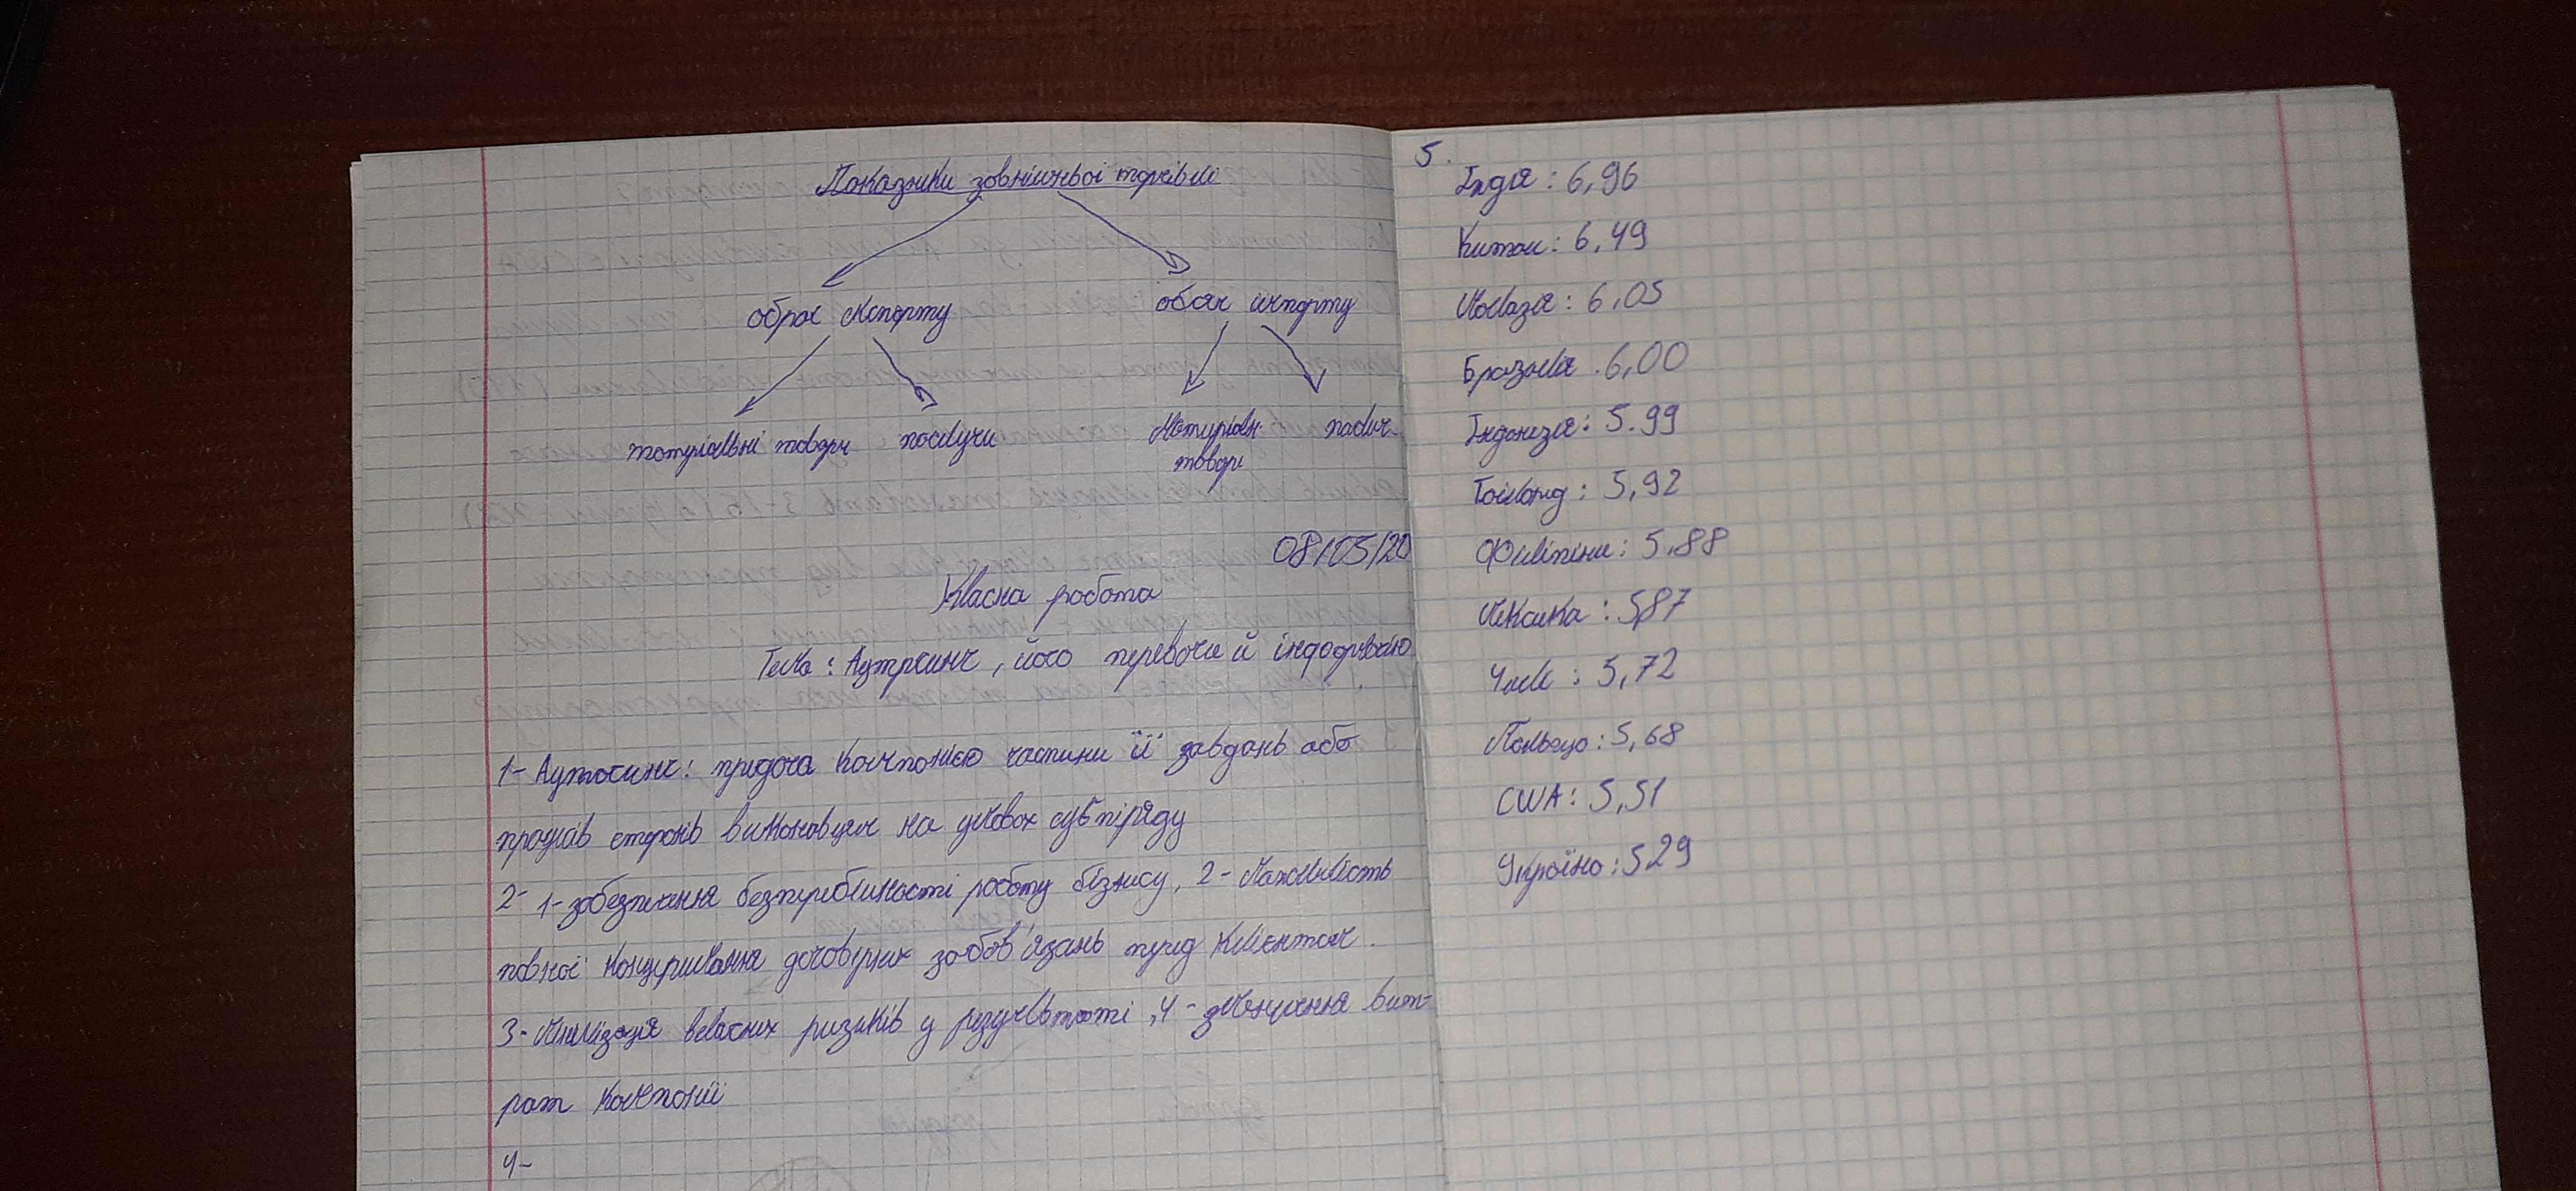 Показники зовнішньої торгівлі
обсяг експорту обсяг імпорту
матеріальні товари послуги матеріальн. товари послуг.
08/05/20
Класна робота
Тема: Аутсрсинг, його переваги й
1- Аутсосинг: придача компонією частини її завдань або
процесів сторонів виконавцям на умовах субпідряду
2- 1- забезпечення безперебійності роботи бізнесу, 2- Можливість
повної договірних зобов'язань перед клієнтам.
3- Мінімізація власних ризиків у результаті, 4- зменшення вит-
рат компонії
4-
5.
Індія: 6,96
Китаи: 6,49
Малазія: 6,05
Бразилія. 6,00
Індонезія: 5.99
Таіланд: 5,92
Филіпіни: 5,88
Мексика: 5,87
Чилі: 5,72
Польща: 5,68
США: 5,51
Україна: 529